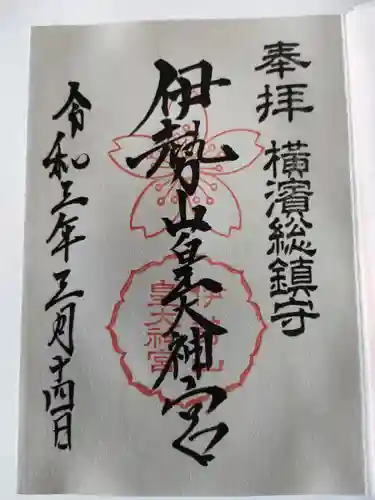 奉拝 横濱総鎮守
伊勢山皇大神宮
伊勢山
皇大神宮
令和三年三月十四日